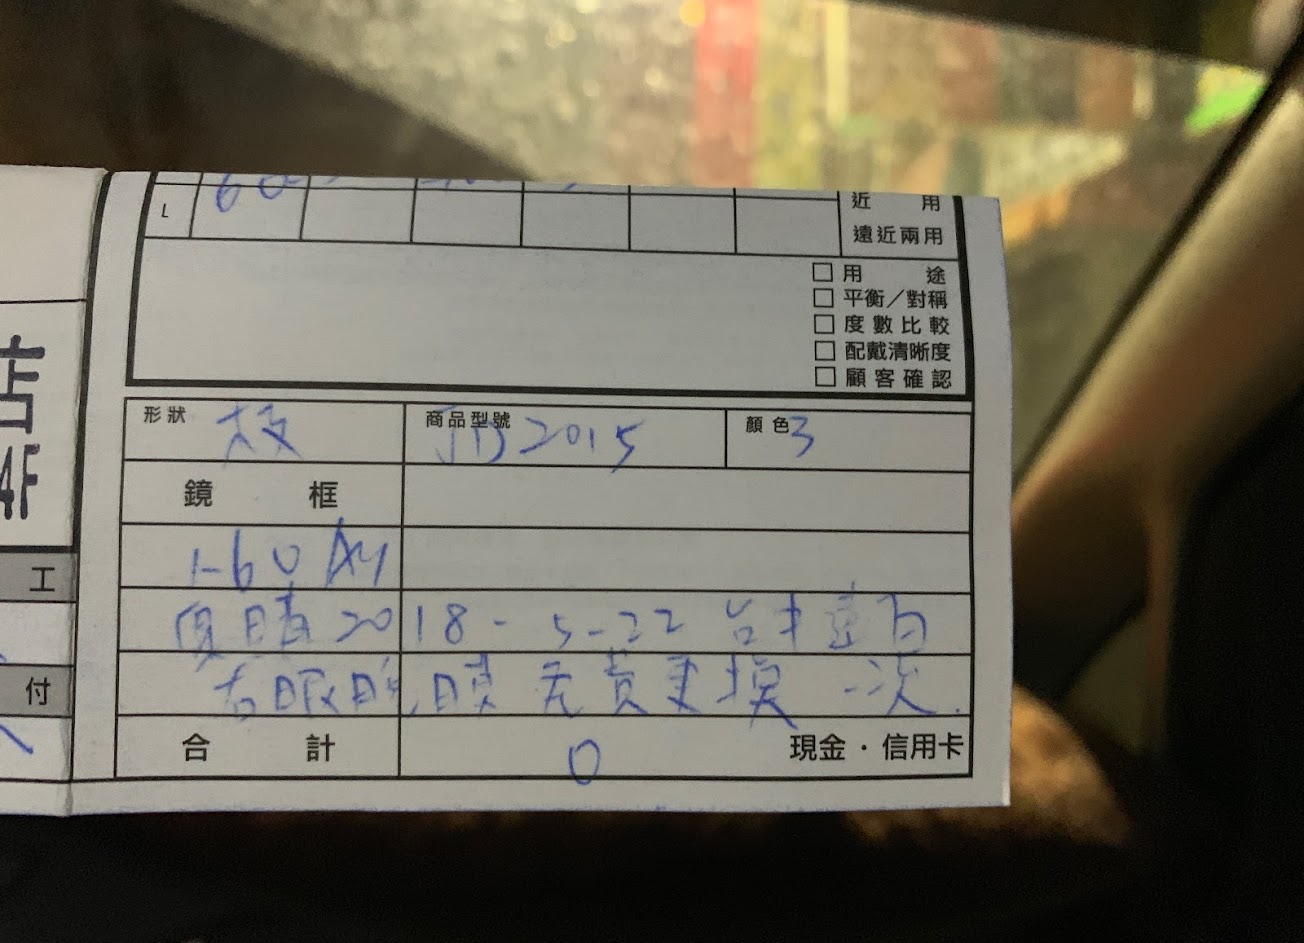 L 60
近 用
遠近兩用
□ 用 途
□ 平衡／對稱
□ 度數比較
□ 配戴清晰度
□ 顧客確認
店
4F
工
付
形狀 商品型號 JD2015 顏色 3
鏡 框
1-60
2018-5-22 台中
右眼 膜 免費更換一次.
合 計 0 現金・信用卡